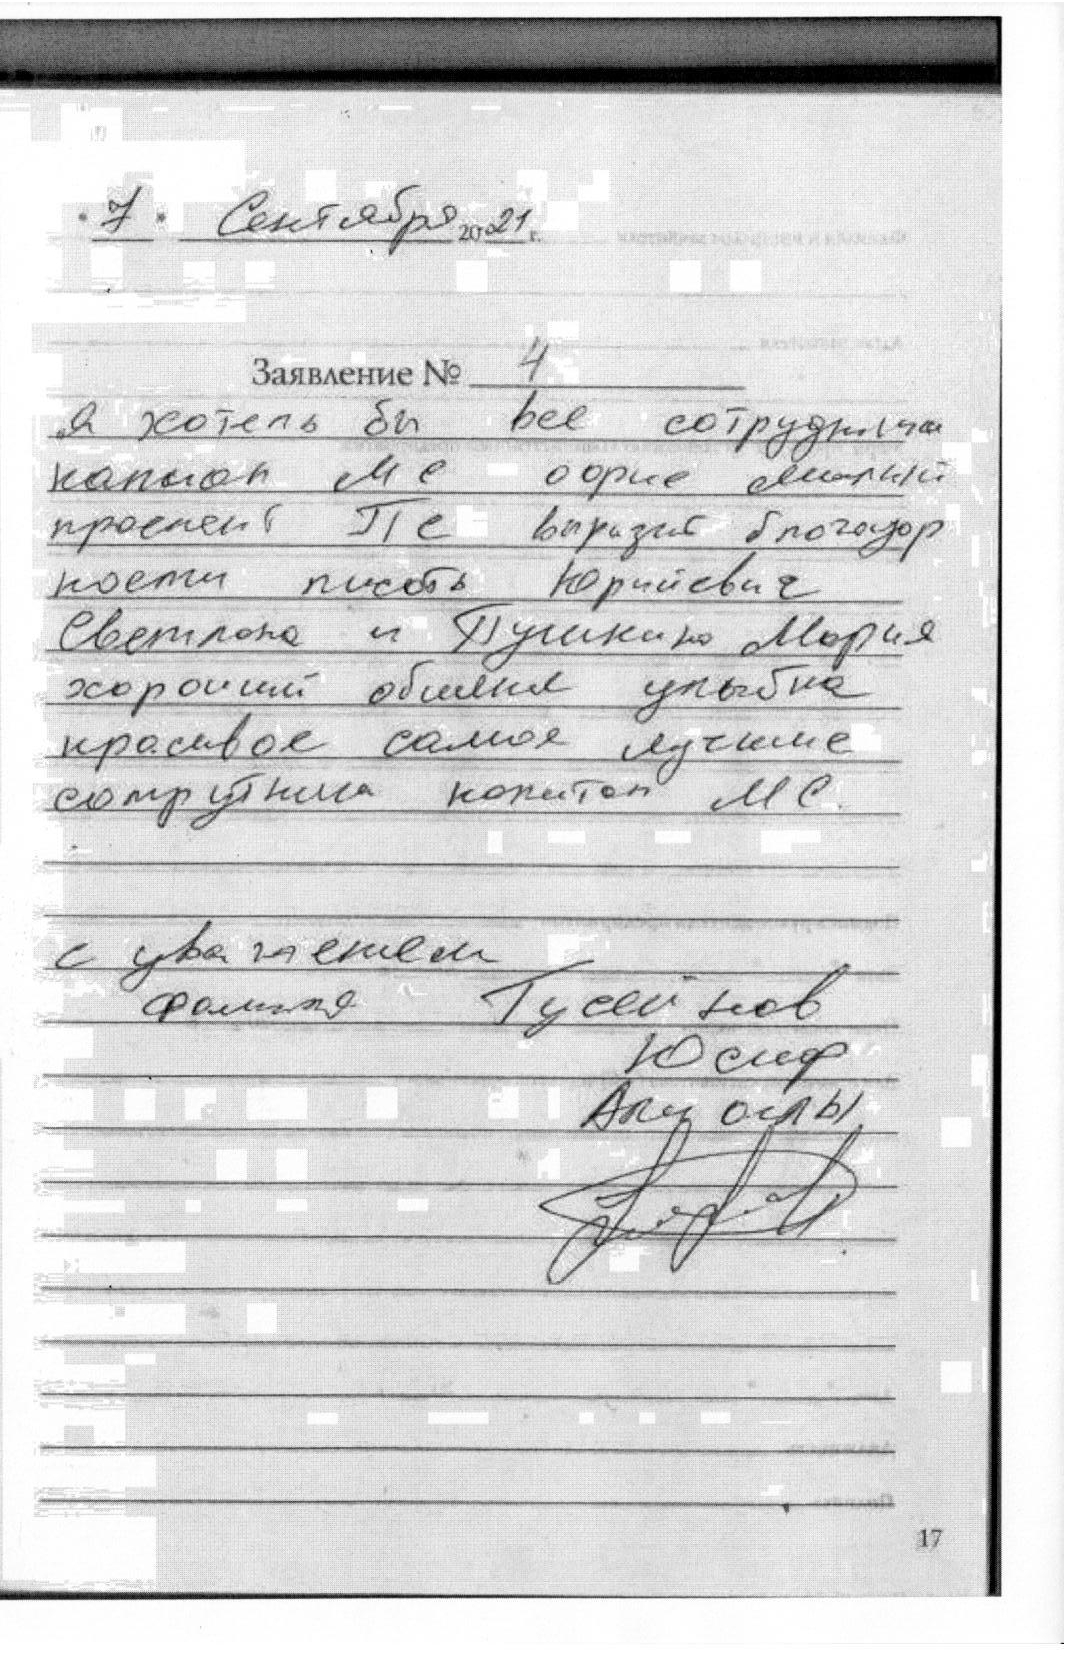 "7" Сентября 2021 г.
Заявление № 4
я хотель бы все сотрудники
МС офис
проспект ПС выразит благодар
ности писать Юрийевич
Светлана и Пушкина Мария
хороший обшения улыбка
красивое самое лучшие
сотрутника капитан МС.
с уважением
фамиля Гусейнов
Юсиф
Али оглы
17